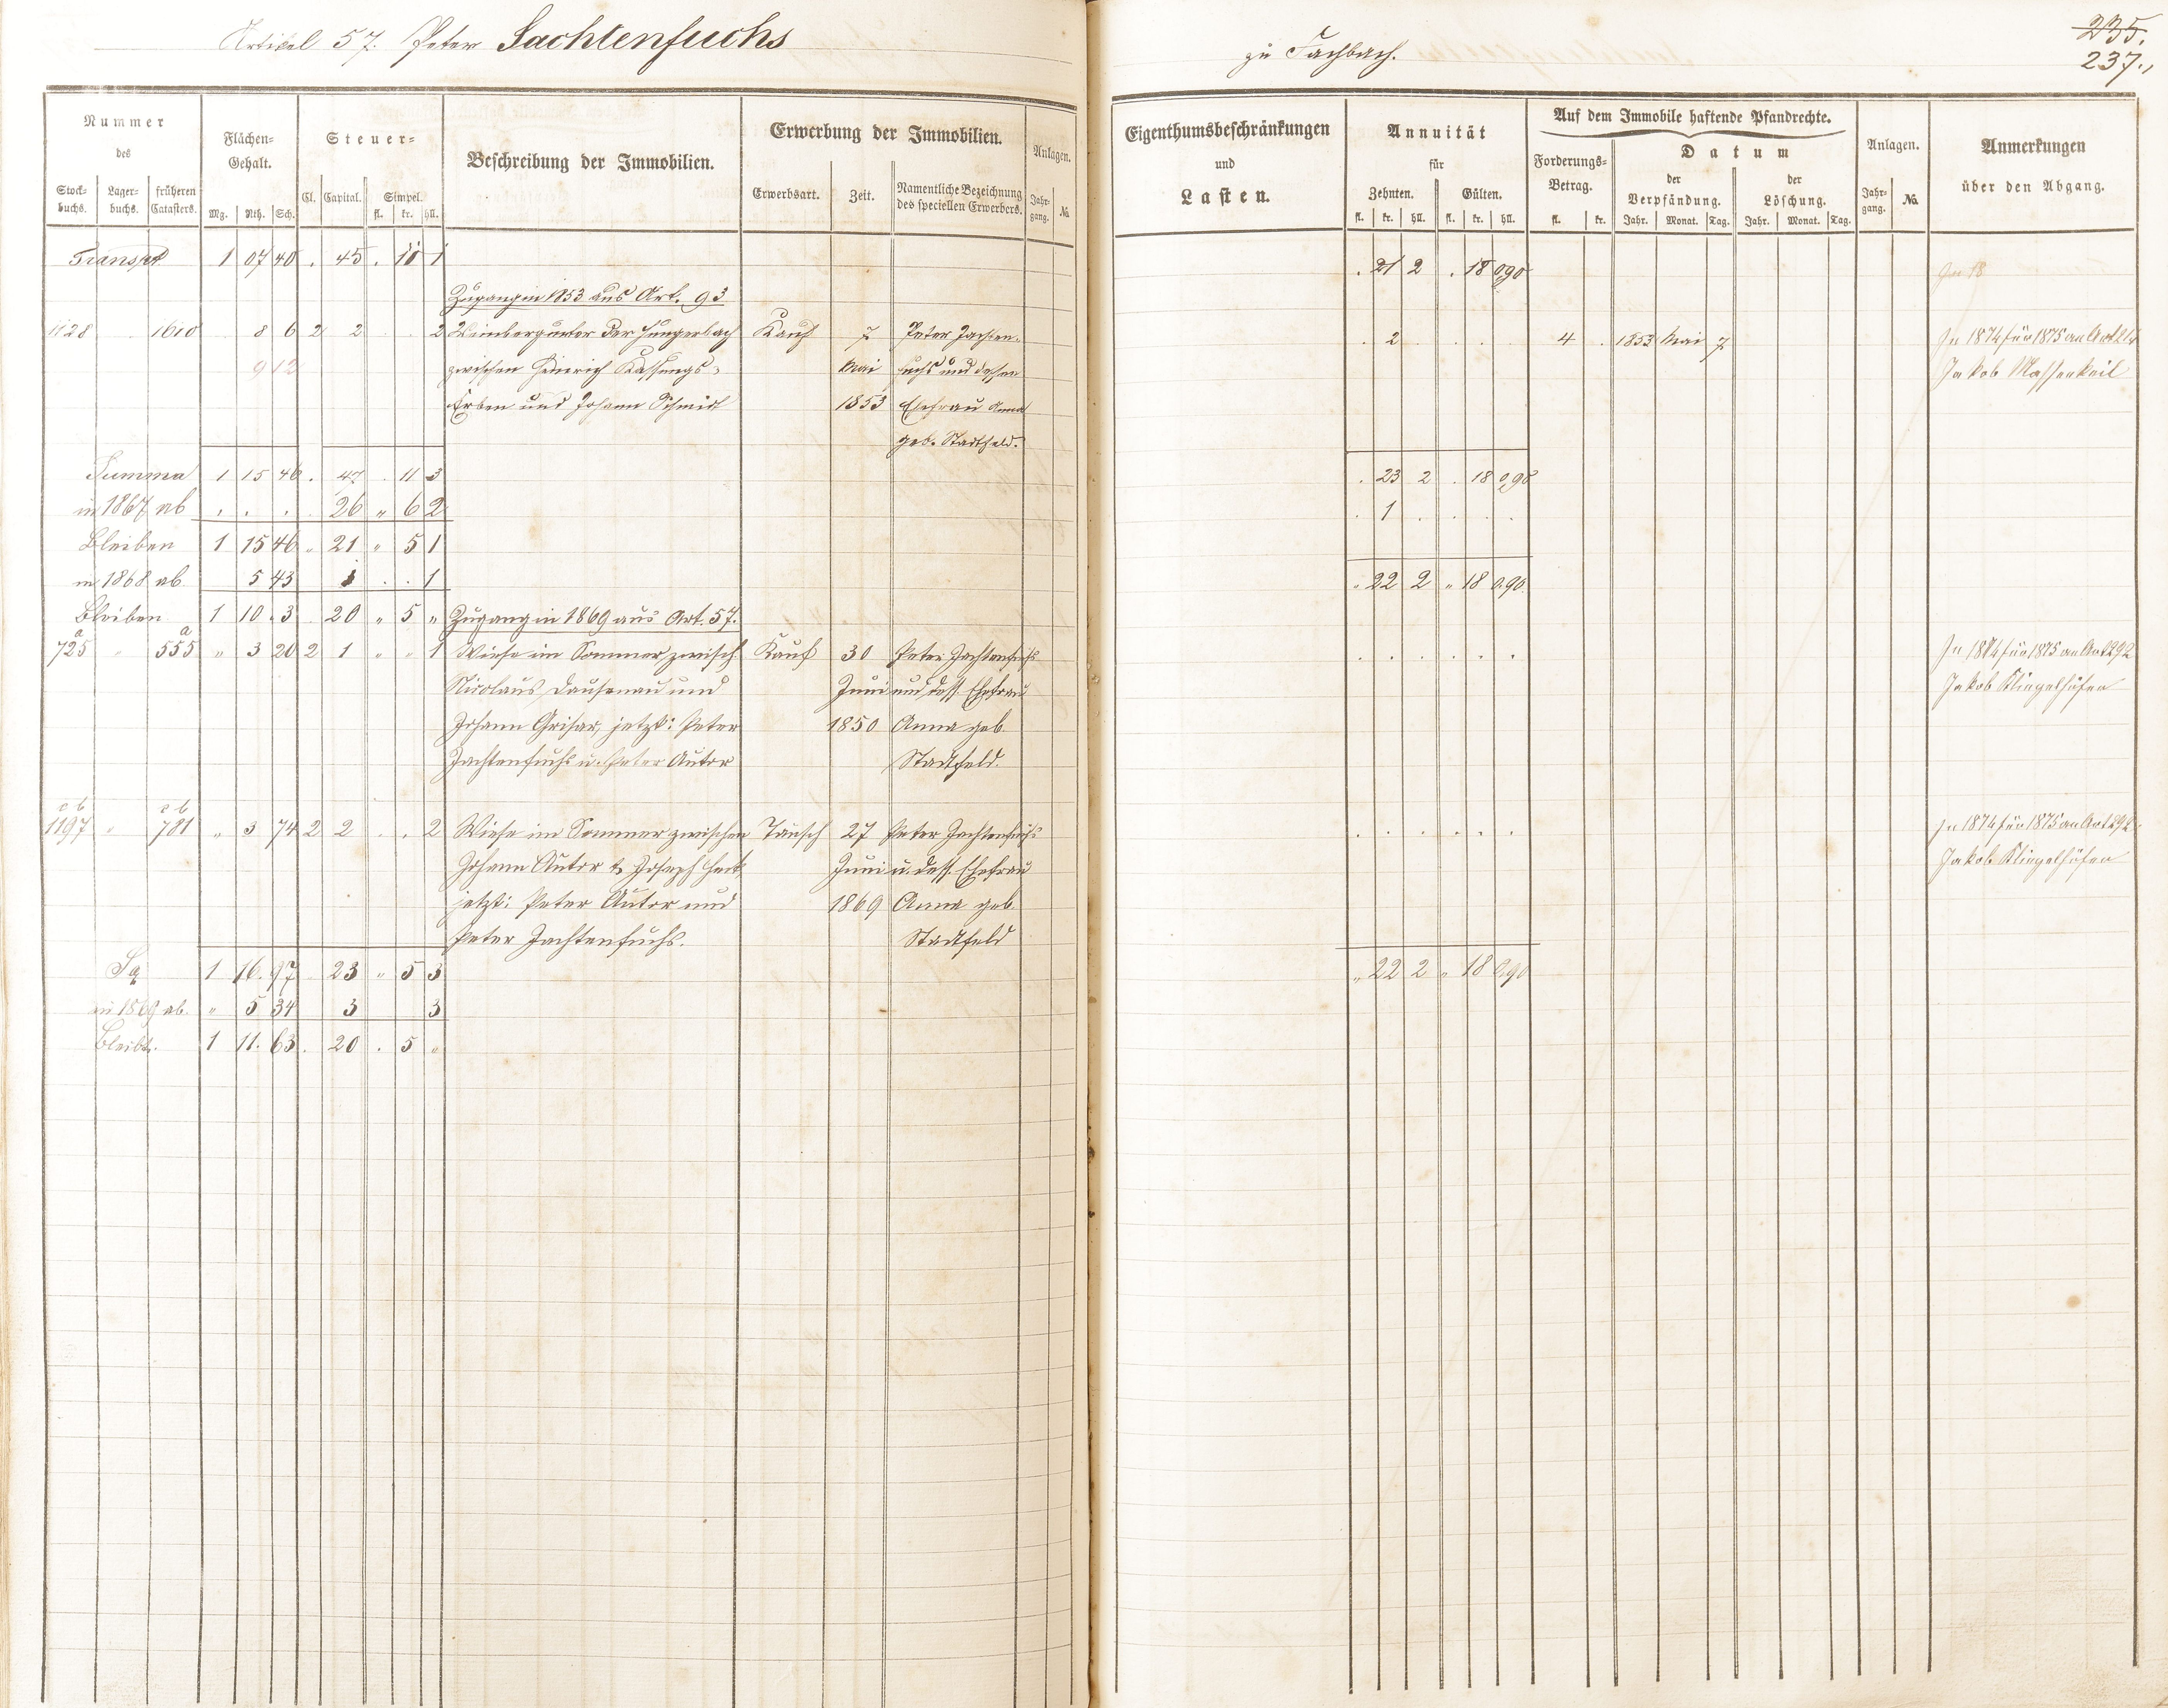 Artikel 57. Peter Jachtenfuchs
zu Fachbach.
235.
237.
Nummer
des
Stock-
buchs.
Lager-
buchs.
früheren
Catasters.
Flächen-
Gehalt.
Mg. Rth. Sch.
Steuer-
Cl. Capital. Simpel.
fl. kr. hll.
Beschreibung der Immobilien.
Erwerbung der Immobilien.
Erwerbsart. Zeit. Namentliche Bezeichnung
des speciellen Erwerbers.
Anlagen.
Jahr-
gang. №
Eigenthumsbeschränkungen
und
Lasten.
Annuität
für
Zehnten. Gülten.
fl. kr. hll. fl. kr. hll.
Auf dem Immobile haftende Pfandrechte.
Forderungs-
Betrag.
fl. kr.
Datum
der
Verpfändung.
Jahr. Monat. Tag.
der
Löschung.
Jahr. Monat. Tag.
Anlagen.
Jahr-
gang. №
Anmerkungen
über den Abgang.
Transpt 1 07 40 . 45 . 11 1 . 21 2 . 18 090 In 18
Zugang in 1853 aus Art. 93
1128 1610 8 6 2 2 . . 2 Weinberg unter der Hungerbach Kauf 7 Peter Jachten- . 2 4 . 1853 Mai 7 In 1874 für 1875 an Art
912 zwischen Heinrich Mai fuchs und dessen Jakob Massenkeil
Erben und Johann Schmidt 1853 Ehefrau Anna
geb. Stadtfeld.
Summa 1 15 46 . 47 . 11 3 . 23 2 . 18 090
in 1867 ab . . . 26 " 6 2 . 1 . . . .
Bleiben 1 15 46 " 21 " 5 1
in 1868 ab. 5 43 1 . . 1 " 22 2 " 18 090.
Bleiben 1 10 . 3 20 " 5 " Zugang in 1869 aus Art. 57.
725 a " 555 a " 3 20 2 1 " " 1 Wiese im Sommer zwisch. Kauf 30 Peter Jachtenfuchs . . . . . . In 1874 für 1875 an Art 292
Nicolaus Dausenau und Juni und dess. Ehefrau Jakob Klingelhöfer
Johann Grisar, jetzt: Peter 1850 Anna geb.
Jachtenfuchs u. Peter Autor Stadtfeld.
1197 c b " 781 c b " 3 74 2 2 . . 2 Wiese im Sommer zwischen Tausch 27 Peter Jachtenfuchs . . . . . . In 1874 für 1875 an Art 292
Johann Autor & Joseph Juni u. dess. Ehefrau Jakob Klingelhöfer
jetzt: Peter Autor und 1869 Anna geb.
Peter Jachtenfuchs. Stadtfeld
Sa 1 16. 97 23 " 5 3 " 22 2 " 18 090
in 1869 ab. " 5 34 3 3
Bleibt. 1 11. 63 . 20 . 5 "